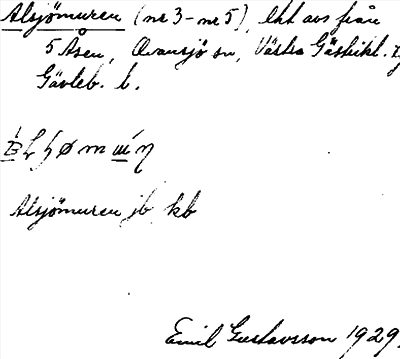 Alsjömuren (nr 3 - nr 5), lht avs från
5 Åsen, Ovansjö sn, Västra Gästrikl.
Gävleb. l.
Alsjömuren jb kb
Emil Gustavsson 1929.